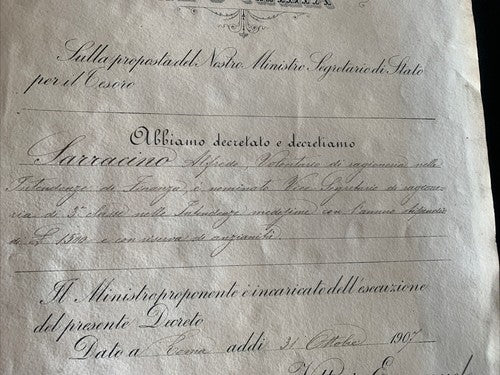 Sulla proposta del Nostro Ministro Segretario di Stato
per il Tesoro
Abbiamo decretato e decretiamo
Sarracino Alfredo, Volontario di ragioneria nelle
Intendenze di Finanza, è nominato Vice Segretario di ragione-
ria di 3ª classe nelle Intendenze medesime con l'annuo stipendio
di £ 1500 e con riserva di anzianità.
Il Ministro proponente è incaricato dell'esecuzione
del presente Decreto
Dato a Roma addì 31 Ottobre 1907
Vittorio Emanuel